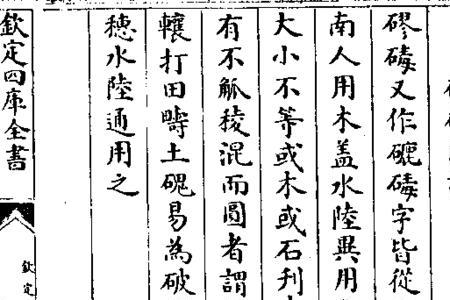 磟碡又作䃙碡字皆從
南人用木蓋水陸異用
大小不等或木或石刋
有不觚稜混而圓者謂
打田疇土磈易為破
穗水陸通用之
欽定四庫全書
欽定